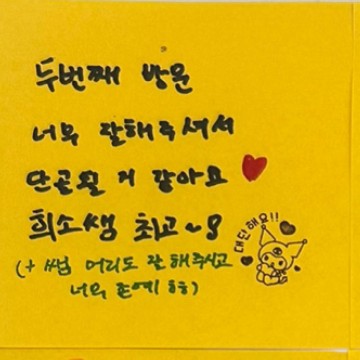 두번째 방문
너무 잘해주셔서
단골될 거 같아요 ♥
희소쌤 최고~8
대단해요!!
(+ 쌤 머리도 잘 해주시고
너무 존예 ㅎㅎ)